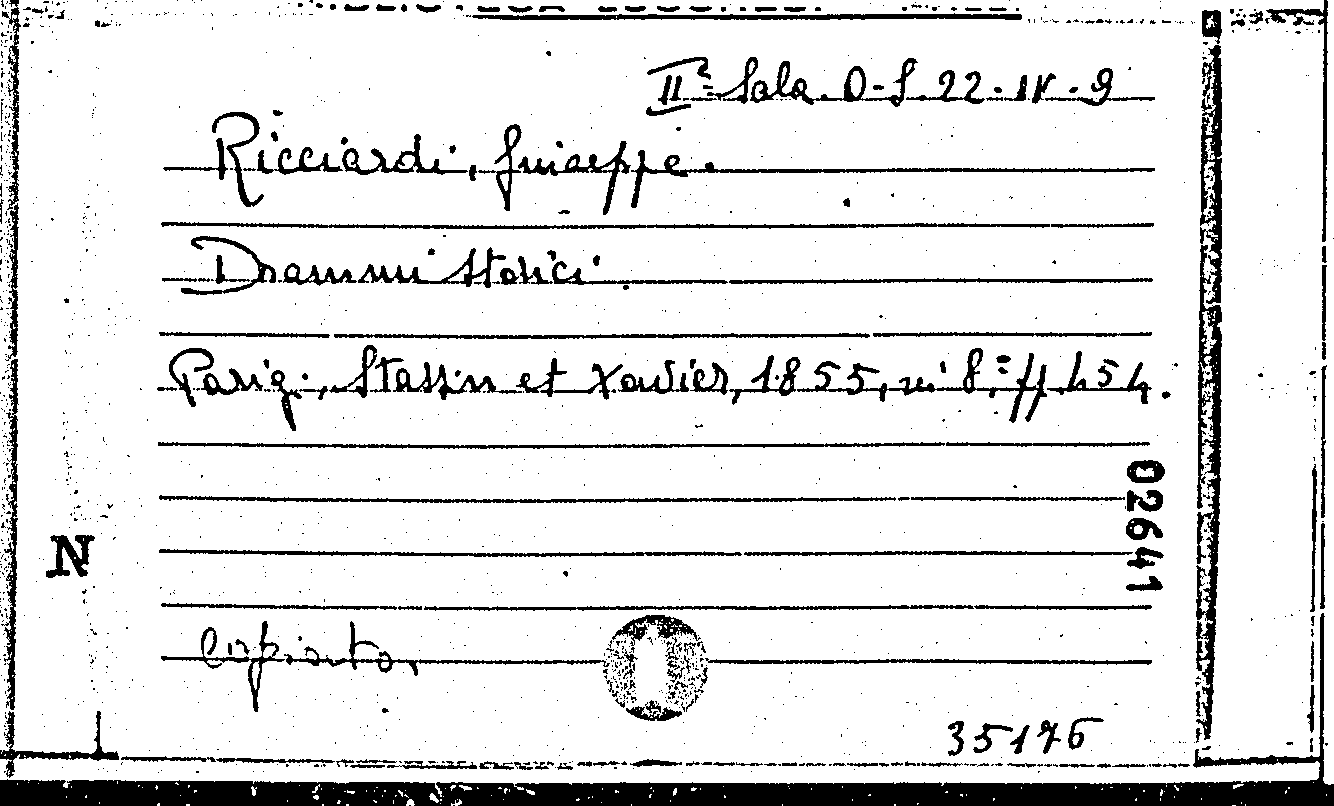 IIª Sala. O-S. 22. IV. 9
Ricciardi, Giuseppe.
Drammi storici.
Parigi, Stassin et Xavier, 1855, in 8.º pp. 454.
02641
N
Copiato.
35176